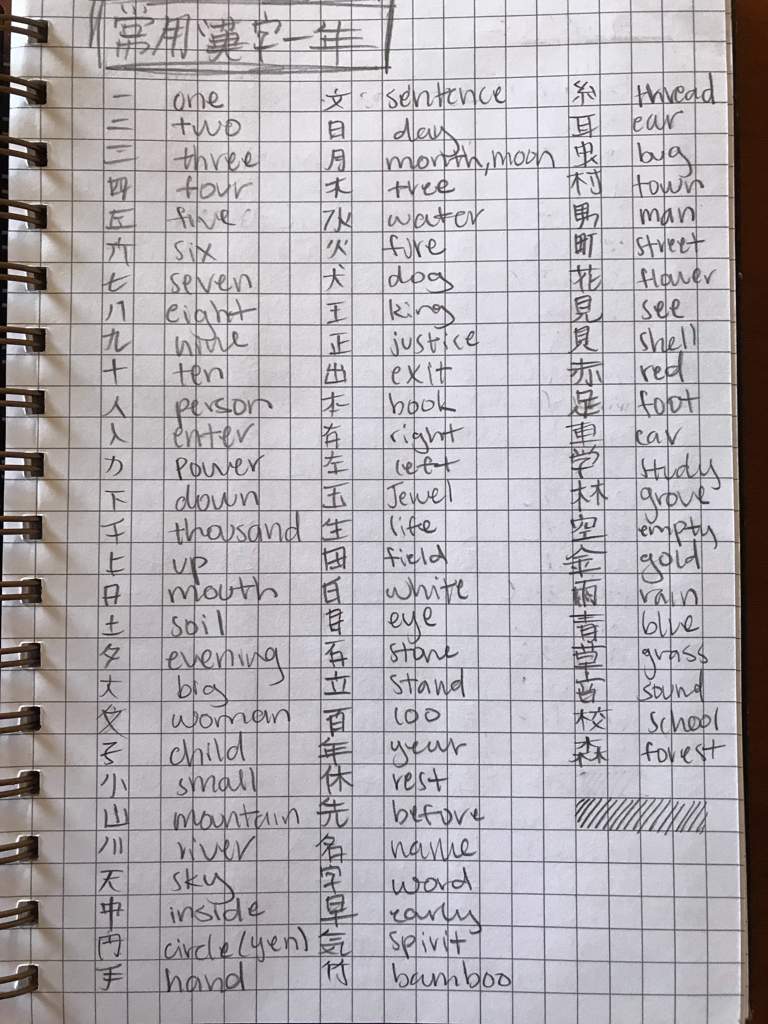 常用漢字一年
一 one
二 two
三 three
四 four
五 five
六 six
七 seven
八 eight
九 nine
十 ten
人 person
入 enter
力 power
下 down
千 thousand
上 up
口 mouth
土 soil
夕 evening
大 big
女 woman
子 child
小 small
山 mountain
川 river
天 sky
中 inside
円 circle(yen)
手 hand
文 sentence
日 day
月 month,moon
木 tree
水 water
火 fire
犬 dog
王 king
正 justice
出 exit
本 book
右 right
左 left
玉 Jewel
生 life
田 field
白 white
目 eye
石 stone
立 stand
百 100
年 year
休 rest
先 before
名 name
字 word
早 early
気 spirit
竹 bamboo
糸 thread
耳 ear
虫 bug
村 town
男 man
町 street
花 flower
見 see
貝 shell
赤 red
足 foot
車 car
学 study
林 grove
空 empty
金 gold
雨 rain
青 blue
草 grass
音 sound
校 school
森 forest